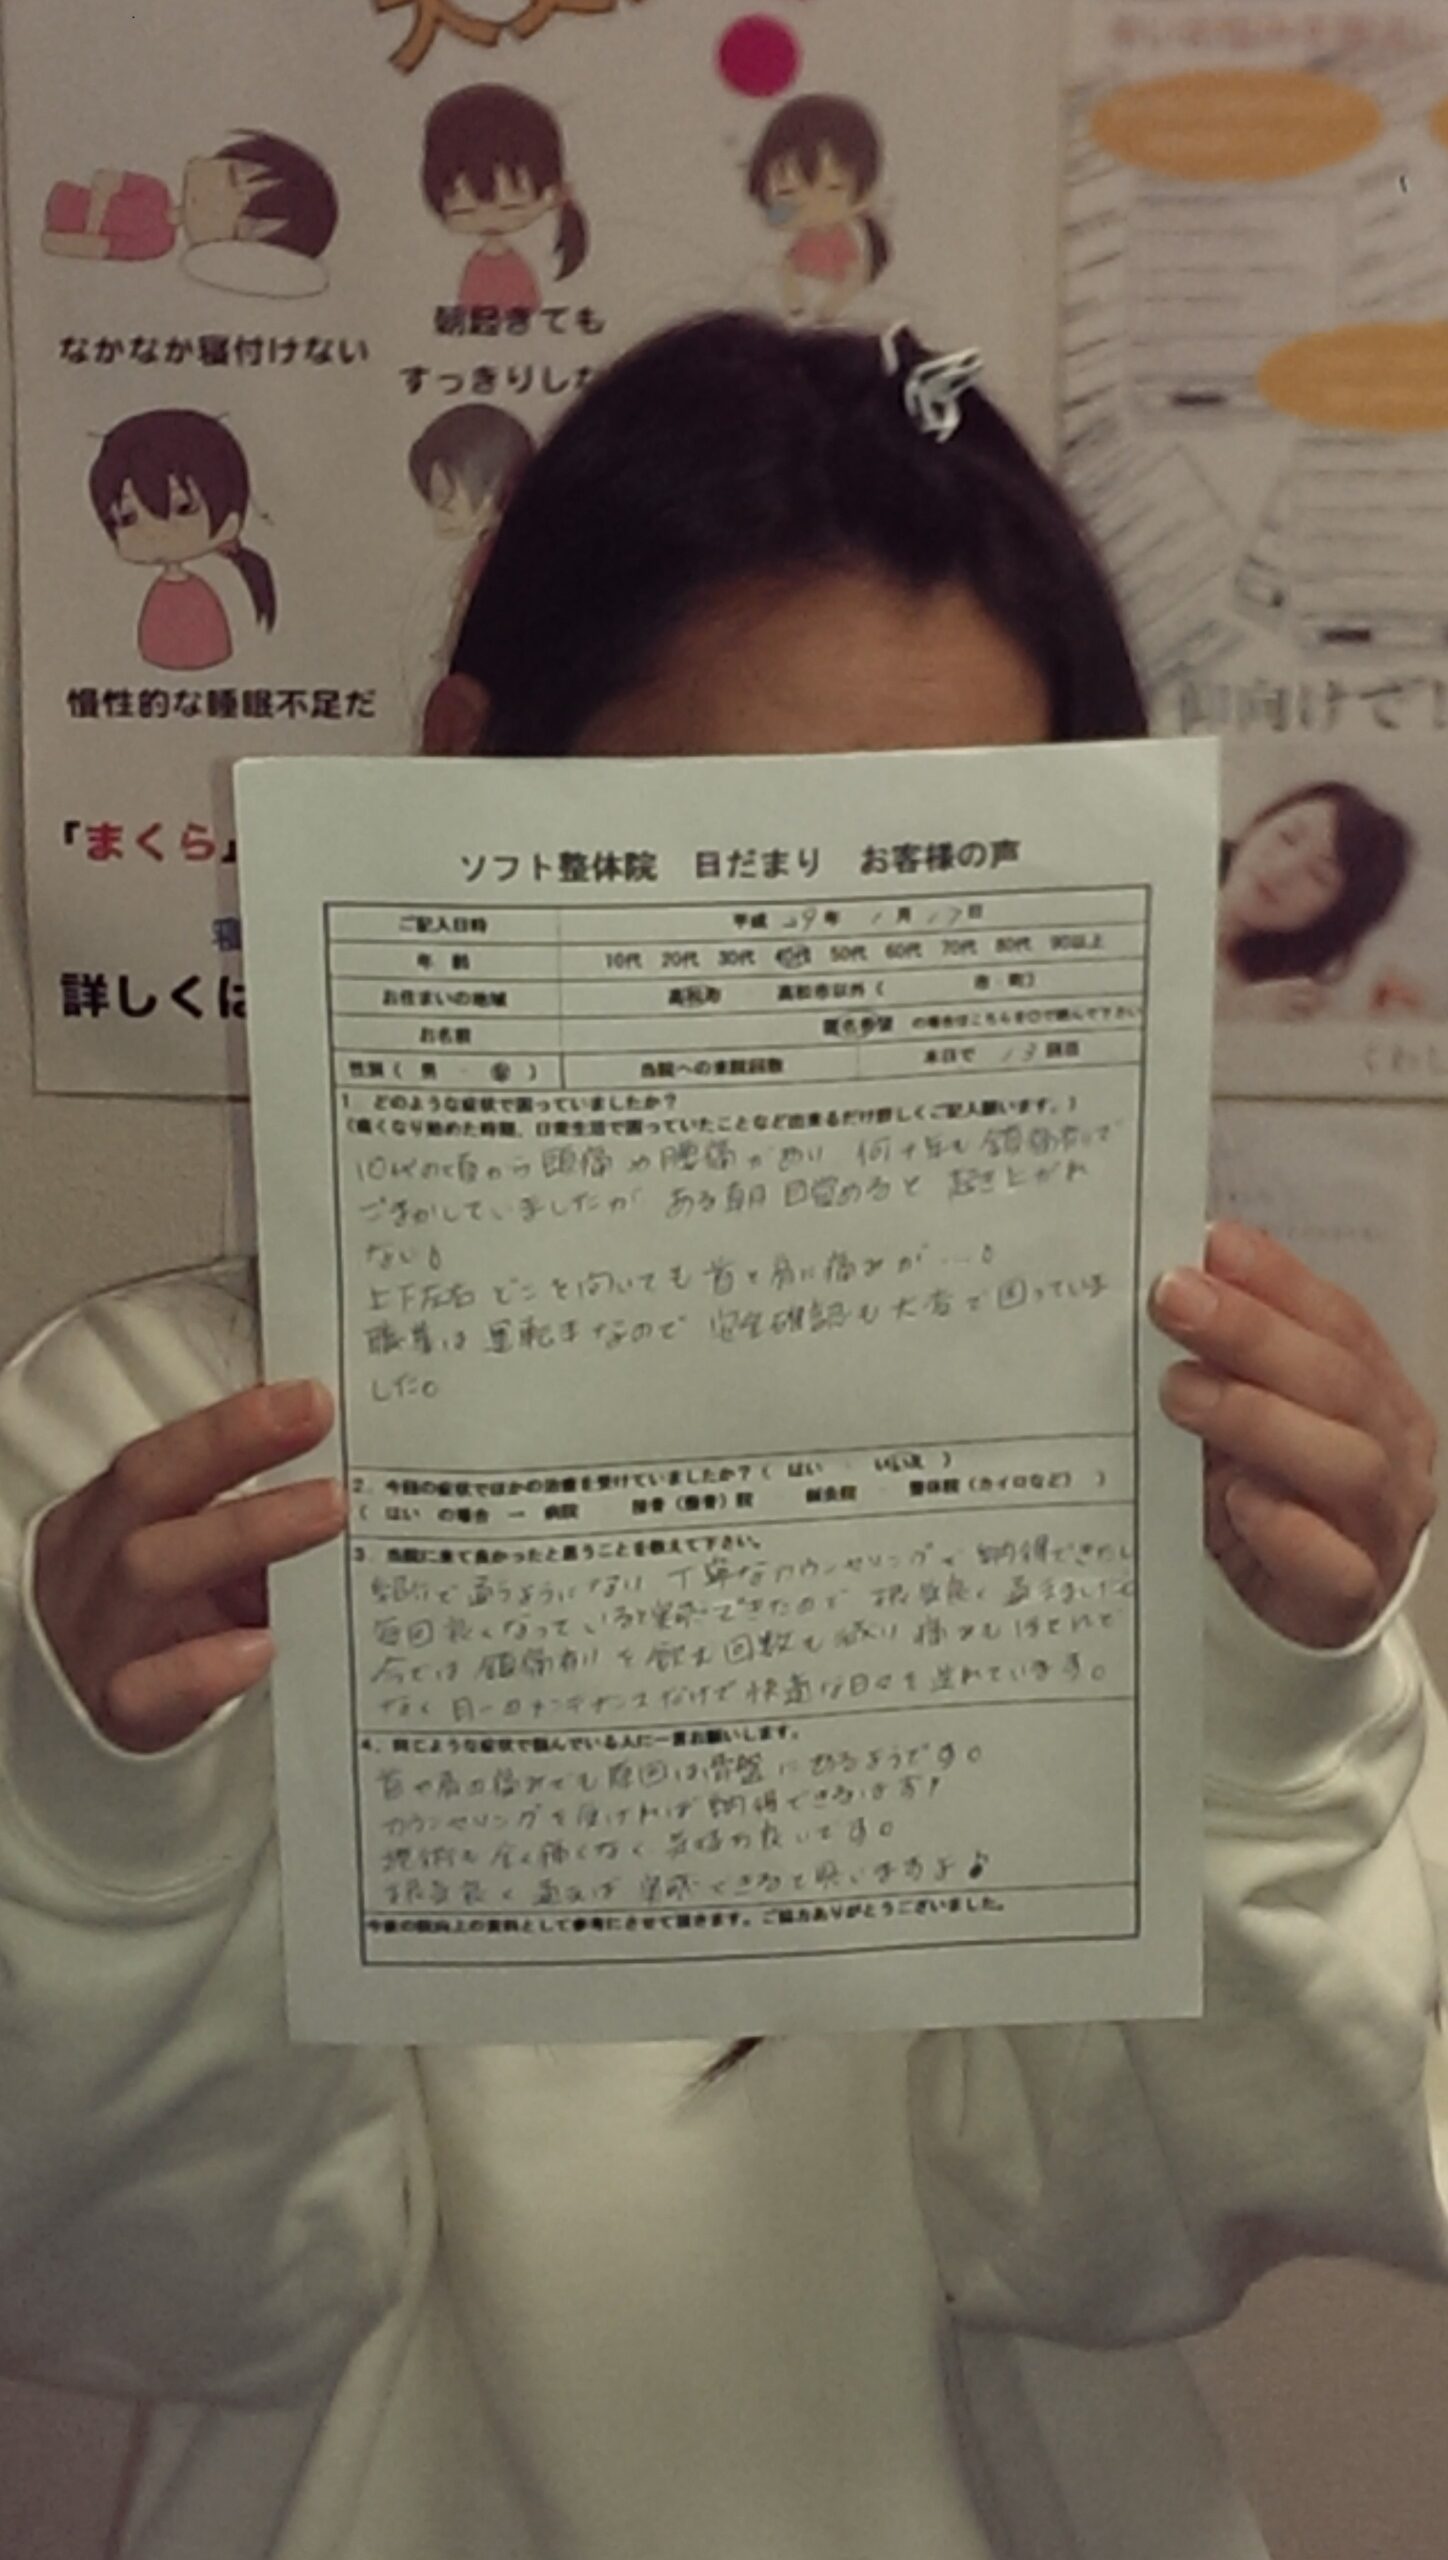 なかなか寝付けない
朝起きても
すっきりしな
慢性的な睡眠不足だ
「まくら」
詳しくは
仰向けで
ソフト整体院 日だまり お客様の声
ご記入日時 平成 29年 1月 17日
年 齢 10代 20代 30代 40代 50代 60代 70代 80代 90以上
お住まいの地域 高松市 高松市以外( 市・町)
お名前 匿名希望 の場合はこちらを○で囲んで下さい
性別( 男 ・ 女 ) 当院への来院回数 本日で 13回目
1.どのような症状で困っていましたか?
(痛くなり始めた時期、日常生活で困っていたことなど出来るだけ詳しくご記入願います。)
10代の頃から頭痛や腰痛があり 何十年も鎮痛剤で
ごまかしていましたが ある朝目覚めると 起き上がれ
ない。
上下左右どこを向いても首と肩に痛みが…。
職業は運転手なので 安全確認も大変で困っていま
した。
2.今回の症状でほかの治療を受けていましたか?( はい ・ いいえ )
( はい の場合 → 病院 ・ 接骨(整骨)院 ・ 鍼灸院 ・ 整体院(カイロなど) )
3.当院に来て良かったと思うことを教えて下さい。
紹介で通うようになり 丁寧なカウンセリングで納得できたし
毎回良くなっていると実感できたので 根気良く通えました。
今では鎮痛剤を飲む回数も減り 痛みもほとんど
なく月一のメンテナンスだけで快適な日々を送れています。
4.同じような症状で悩んでいる人に一言お願いします。
首や肩の痛みでも原因は骨盤にあるようです。
カウンセリングを受ければ納得できるはず!
施術も全く痛くなく気持ち良いです。
根気良く通えば実感できると思いますよ♪
今後の院向上の資料として参考にさせて頂きます。ご協力ありがとうございました。